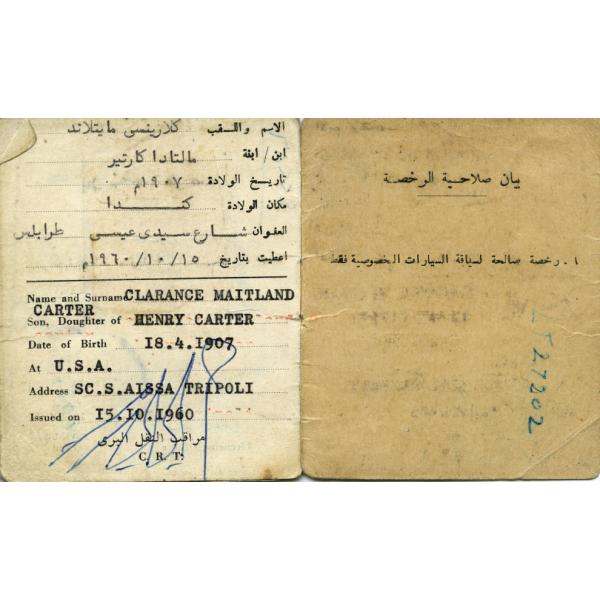 الاسم واللقب كلارينسى مايتلاند
ابن / ابنة مالتادا كارتير
تاريخ الولادة ١٩٠٧م
مكان الولادة كندا
العنوان شارع سيدى عيسى طرابلس
اعطيت بتاريخ ١٩٦٠/١٠/١٥م
Name and Surname CLARANCE MAITLAND
CARTER
Son, Doughter of HENRY CARTER
Date of Birth 18.4.1907
At U.S.A.
Address SC.S.AISSA TRIPOLI
Issued on 15.10.1960
مراقب النقل البرى
C. R. T.
بيان صلاحية الرخصة
١ . رخصة صالحة لسياقة السيارات الخصوصية فقط
27202